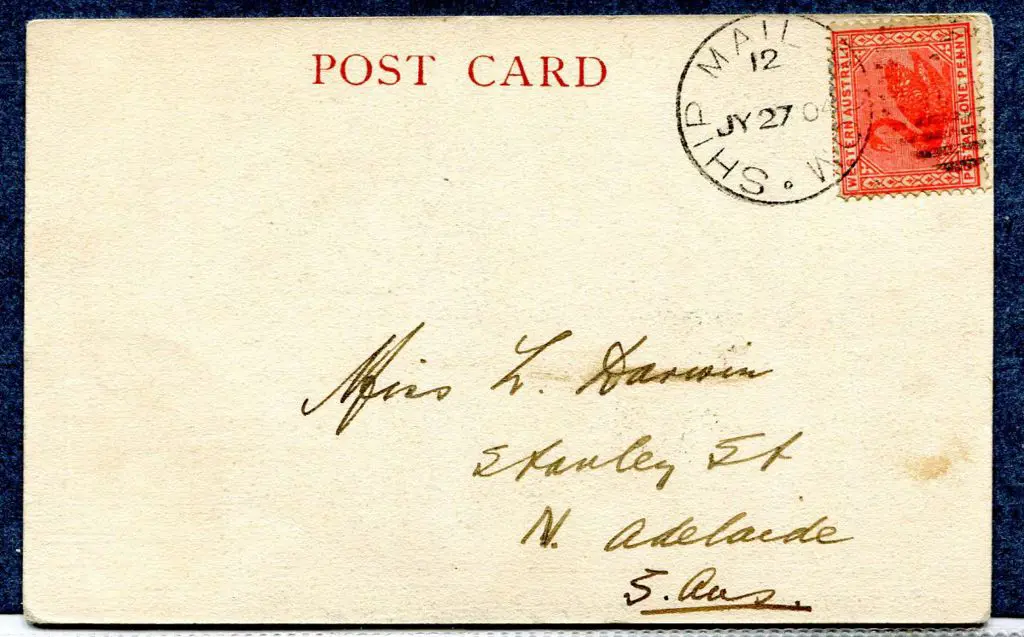 POST CARD
SHIP MAIL
12
JY 27 04
W
WESTERN AUSTRALIA
POSTAGE ONE PENNY
Miss L. Darwin
Stanley St
N. Adelaide
S. Aus.